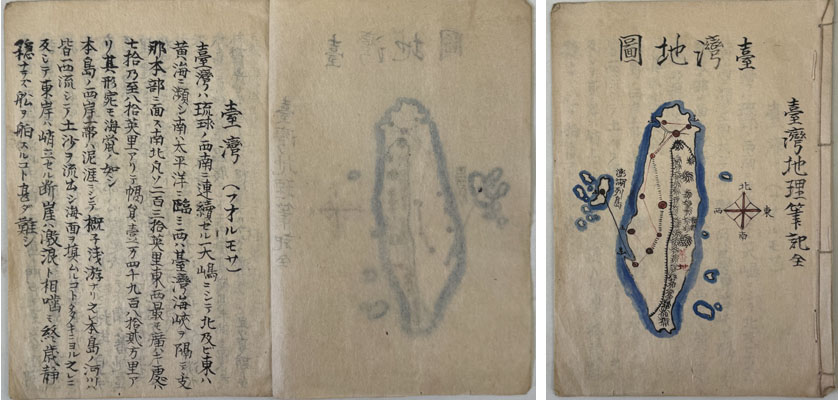 臺灣(フオルモサ)
臺灣ハ琉球ノ西南ニ連續セル一大嶋ニシテ北及ビ東ハ
黄海ニ瀕シ南ハ太平洋ニ臨ミ西ハ臺灣海峽ヲ隔テ支
那本部ニ面ス南北凡ソ二百三拾英里東西最モ廣キ處ハ
七拾乃至八拾英里アリテ幅員壹万四千九百八拾貳方里ア
リ其形宛モ海鼠ノ如シ
本島ノ西岸一帶ハ泥涯ニシテ概子浅游ナリ之レ本島ノ河川ハ
皆西流シテ土沙ヲ流出シ海面ヲ填ムルコト夛キニヨル之ニ
反シテ東岸ハ峭立セル断崖ハ激浪ト相噛ミ終歳静
穩ナラス船ヲ舶スルコト甚ダ難シ
臺灣地圖
臺灣地理筆記 全
北
東
西
南
澎湖列島